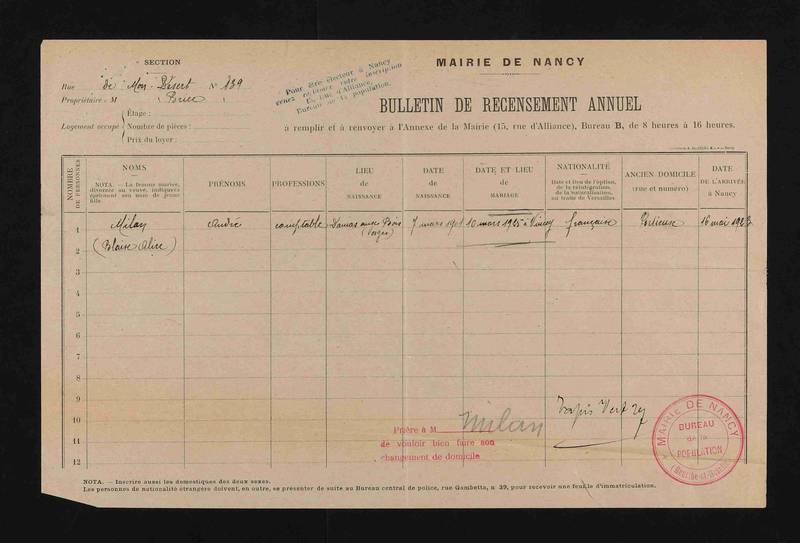 SECTION
Rue de Mon-Désert N° 139
Propriétaire : M
Logement occupé
Étage :
Nombre de pièces :
Prix du loyer :
Pour être électeur à Nancy
venez réclamer votre inscription
15, rue d'Alliance,
Bureau de la population.
MAIRIE DE NANCY
BULLETIN DE RECENSEMENT ANNUEL
à remplir et à renvoyer à l'Annexe de la Mairie (15, rue d'Alliance), Bureau B, de 8 heures à 16 heures.
NOMBRE DE PERSONNES
NOMS
NOTA. — La femme mariée, divorcée ou veuve, indiquera également son nom de jeune fille
PRÉNOMS
PROFESSIONS
LIEU de NAISSANCE
DATE de NAISSANCE
DATE ET LIEU de MARIAGE
NATIONALITÉ
Date et lieu de l'option, de la réintégration, de la naturalisation, ou traité de Versailles.
ANCIEN DOMICILE (rue et numéro)
DATE DE L'ARRIVÉE à Nancy
1 Milan André comptable Damas aux Bois (Vosges) 7 mars 1901 10 mars 1925 à Vincey française 16 mai 192
2 (Blaise Alice)
3
4
5
6
7
8
9
10
11
12
Tapis Vert
Prière à M Milan
de vouloir bien faire son
changement de domicile
MAIRIE DE NANCY
BUREAU
de la
POPULATION
(Meurthe-et-Moselle)
NOTA. — Inscrire aussi les domestiques des deux sexes.
Les personnes de nationalité étrangère doivent, en outre, se présenter de suite au Bureau central de police, rue Gambetta, n° 39, pour recevoir une feuille d'immatriculation.